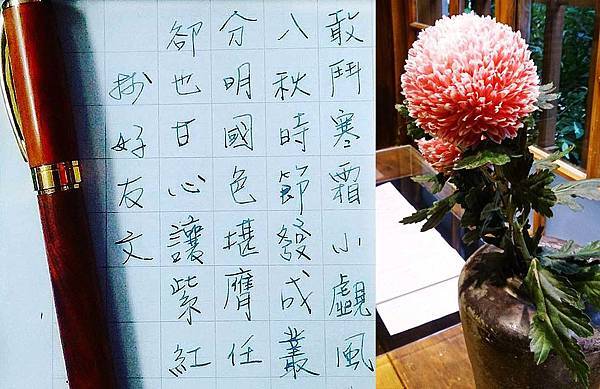 敢鬥寒霜小覷風
八秋時節發成叢
分明國色堪膺任
卻也甘心讓紫紅
抄好友文